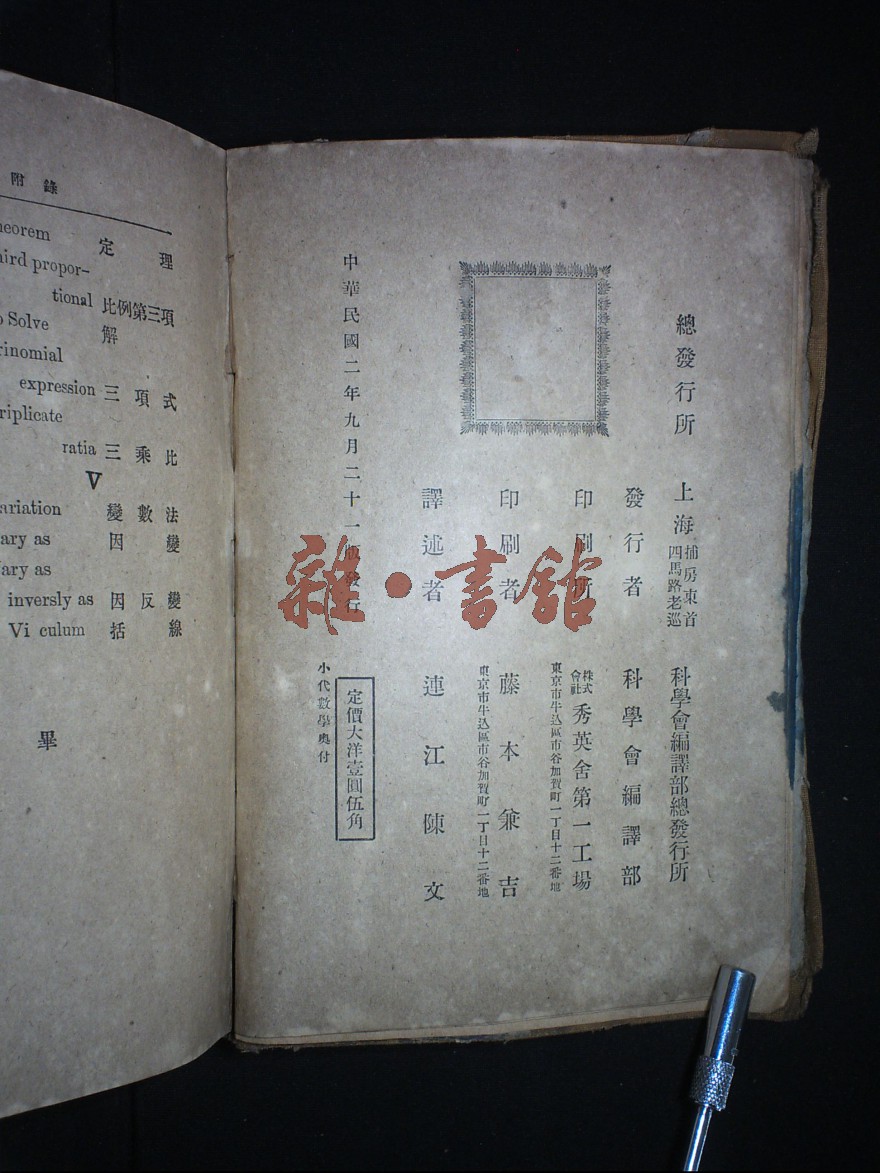 附錄
heorem 定理
hird propor-
tional 比例第三項
o Solve 解
rinomial
expression 三項式
riplicate
ratia 三乘比
V
ariation 變數法
ary as 因變
ary as
inversly as 因反變
Vi culum 括線
畢
總發行所 上海四馬路老巡捕房東首 科學會編譯部總發行所
發行者 科學會編譯部
印刷所 株式會社 秀英舍第一工場
東京市牛込區市谷加賀町一丁目十二番地
印刷者 藤本兼吉
東京市牛込區市谷加賀町一丁目十二番地
譯述者 連江陳文
中華民國二年九月二十一版發行
定價大洋壹圓伍角
小代數學奧付
雜·書館